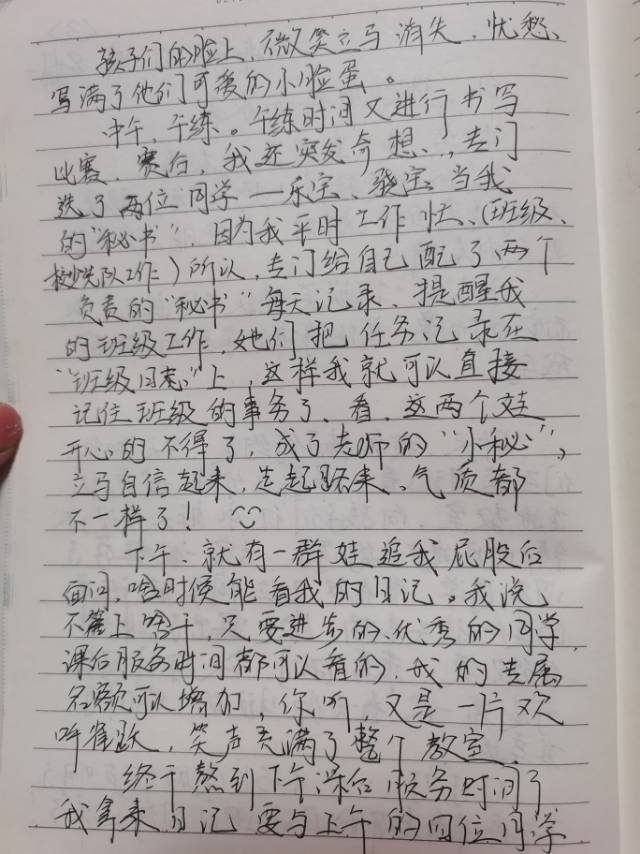 孩子们的脸上，微笑立马消失，忧愁、
写满了他们可爱的小脸蛋。
中午，午练。午练时间又进行书写
比赛，赛后，我还突发奇想，专门
选了两位同学——乐宝、 宝当我
的“秘书”，因为我平时工作忙、（班级、
校少先队工作）所以，专门给自己配了两个
负责的“秘书”每天记录、提醒我
的班级工作，她们把任务记录在
“班级日志”上，这样我就可以直接
记住班级的事务了，看，这两个娃
开心的不得了，成了老师的“小秘”，
立马自信起来，走起路来、气质都
不一样了！
下午、就有一群娃追我屁股后
面问，啥时候能看我的日记。我说，
不管上啥午，只要进步的、优秀的同学，
课后服务时间都可以看的，我的专属
名额可以增加，你听，又是一片欢
呼雀跃，笑声充满了整个教室。
终于熬到下午课后服务时间了
我拿来日记，要与上午的四位同学